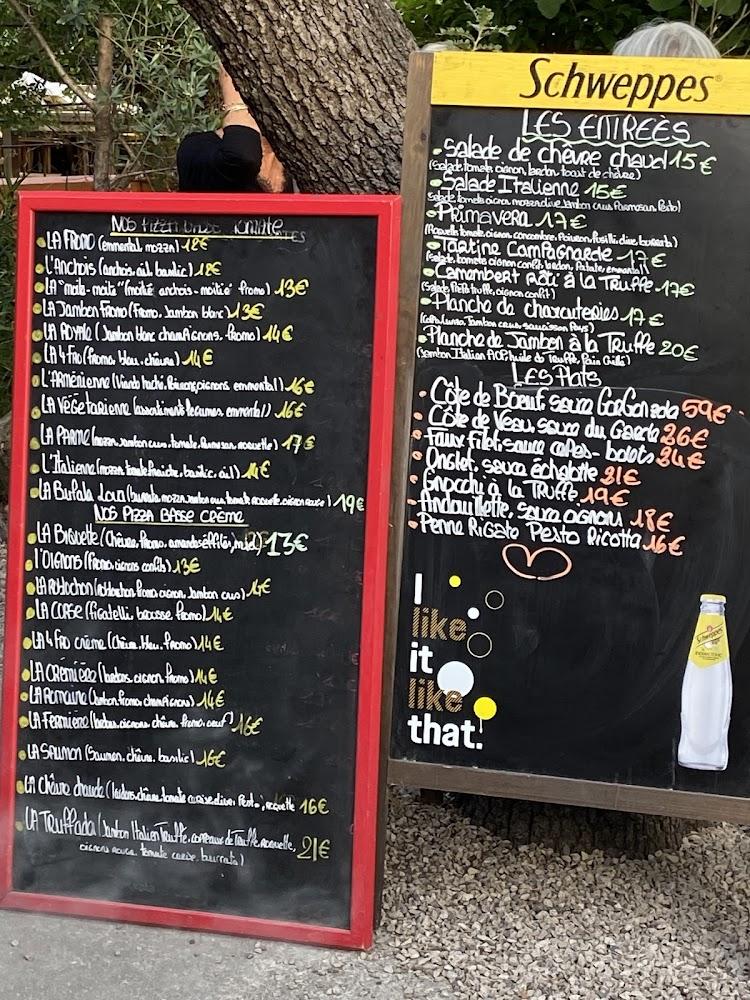 NOS PIZZA BASE TOMATE
LA FROMO (emmental, mozza) 12€
L'Anchois (anchois, ail, basilic) 12€
LA "moite-moite" (moitié anchois-moitié fromo) 13€
LA Jambon Fromo (Fromo, Jambon blanc) 13€
LA ROYALE (Jambon blanc champignons, fromo) 14€
LA 4 Fro (fromo, bleu, chèvre) 14€
L'ARMÉNIENNE (Viande haché, Poivrons, oignons, emmental) 16€
LA VÉGÉTARIENNE (assortiment legumes, emmental) 16€
LA PARME (mozza, Jambon cru, tomate, Parmesan, roquette) 17€
L'Italienne (mozza, tomate fraiche, basilic, ail) 14€
LA Bufala Loca (burrata, mozza, Jambon cru, tomate, roquette, oignon rouge) 19€
NOS PIZZA BASSE CRÈME
LA BIQUETTE (Chèvre, fromo, amandes éffilés, miel) 13€
L'OIGNONS (Fromo, oignons confits) 13€
LA ROBLOCHON (Roblochon, fromo, oignon, Jambon cru) 14€
LA CORSE (Figatelli, brousse, fromo) 14€
LA 4 FRO crème (Chèvre, bleu, fromo) 14€
LA CRÉMIÈRE (lardons, oignon, fromo) 14€
LA ROMAINE (Jambon, fromo, champignons) 14€
LA FERMIÈRE (lardons, oignons, chèvre, fromo, oeuf) 16€
LA SAUMON (Saumon, chèvre, basilic) 16€
LA Chèvre chaude (lardons, chèvre, tomate cerise, olive, Pesto, roquette 16€
LA Truffada (Jambon Italien Truffe, copeaux de Truffe, roquette, 21€
oignons rouge, tomate cerise, burrata)
Schweppes
LES ENTREES
• Salade de chèvre chaud 15€
(Salade, tomate, oignon, lardon, toast de chèvre)
• Salade Italienne 15€
(Salade, tomate, oignon, mozza, olive, Jambon crus, Parmesan, Pesto)
• Primavera 17€
(Roquette, tomate, oignon, concombre, Poivron, fusilli, olive, burrata)
• Tartine Campagnarde 17€
(Salade, tomate, oignon confit, lardon, Patate, emmental)
• Camembert Rôti à la Truffe 17€
(Salade, Pata truffe, oignon confit)
• Planche de charcuteries 17€
(Coppa, Lonzo, Jambon crus, saucisson, Pays)
• Planche de Jambon à la Truffe 20€
(Jambon Italian AOP, huile de Truffe, Pain Grillé)
LES Plats
• Côte de Boeuf, sauce Gorgonzola 59€
• Côte de Veau, sauce du Garde 26€
• Faux filet, sauce cepes-bolets 24€
• Onglet, sauce échalotte 21€
• Gnocchi à la Truffe 19€
• Andouillette, sauce oignons 18€
• Penne Rigate Pesto Ricotta 16€
I
like
it
like
that.
Schweppes
INDIAN TONIC